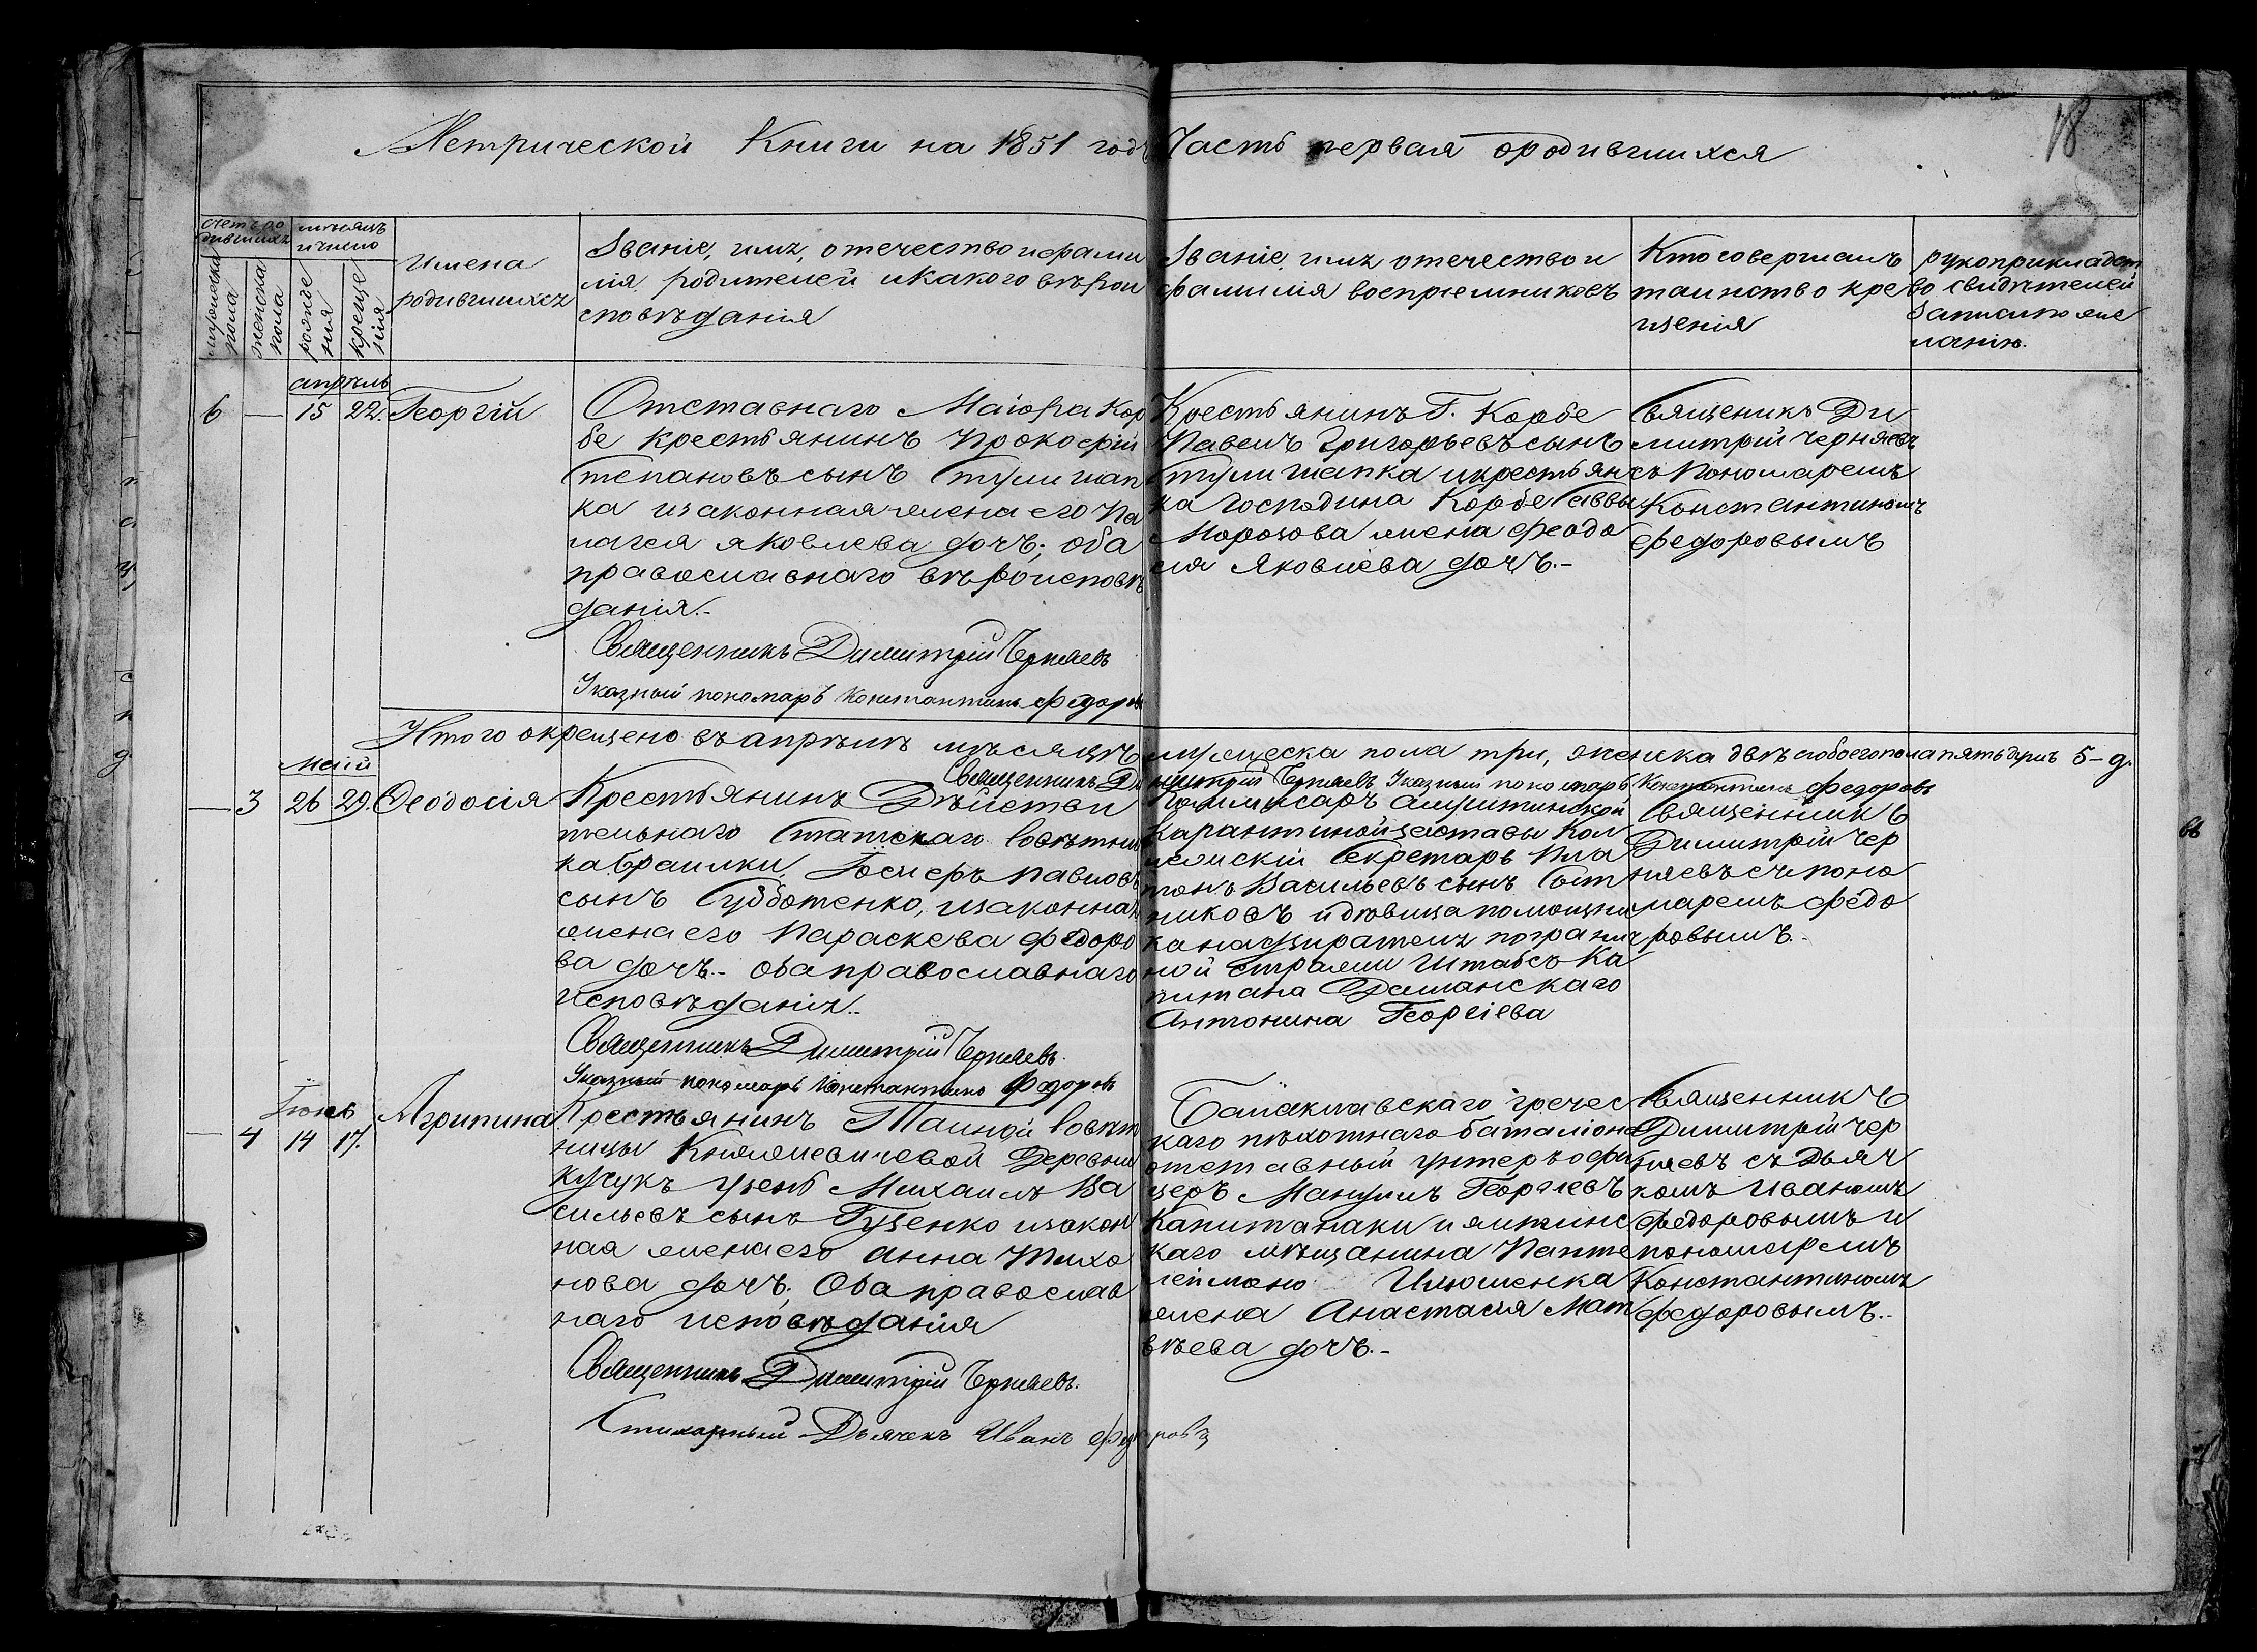 Метрической Книги на 1851 годъ Часть первая ородившихся
18
счетъ ро
дившихъ
мѣсяцъ
и число
мужеска
пола
женска
пола
рожде
нія
креще
нія
Имена
родившихся
Званіе, имя, отечество и фами
лія родителей икакого вѣрои
сповѣданія
Званіе, имя отечество и
фамилія воспріемниковъ
Кто совершалъ
таинство кре
щенія
рукоприкладст
во свидѣтелей
записи по же
ланію.
апрѣль
6 — 15 22. Георгій
Отставнаго Маіора Кор
бе крестьянинъ Прокофій
Степановъ сынъ Стулишап
ка изаконная жена его Пе
лагея яковлева дочъ; оба
православнаго вѣроисповѣ
данія.-
Священникъ Димитрій Черняевъ
Указный пономаръ Константинъ Федоровъ
Крестьянинъ Г. Корбе
Павелъ Григорьевъ сынъ
Стулишапка икрестьян
ка Господина Корбе Саввы
Морозова жена Феодо
сія Яковлева дочъ.-
Священикъ Ди
митрій Черняевъ
съ Пономаремъ
Константиномъ
Федоровымъ
Итого окрещено въ апрѣлѣ мѣсяцѣ мужеска пола три, женска двѣ аобоего пола пять душъ 5-д.
Священникъ Димитрій Черняевъ Указный пономаръ Константинъ Федоровъ
маій
— 3 26 29. Феодосія
Крестьянинъ Дѣйстви
тельнаго Статскаго Совѣтни
ка Браилки, Іосифъ Павловъ
сынъ Субботенко, изаконная
жена его Параскева Федоро
ва дочъ.- оба православнаго
исповѣданія..
Священникъ Димитрій Черняевъ.
Указный пономаръ Константинъ Федоровъ
Коммисаръ Алуштинской
Карантинной заставы Кол
лежскій Секретарь Пла
тонъ Васильевъ сынъ
никовъ и дѣвица помощни
ка надзирателя погранич
ной стражи Штабсъ Ка
питана Даманскаго
Антонина Георгіева
Священникъ
Димитрій Чер
няевъ съ поно
маремъ Федо
ровымъ.-
Іюнь
— 4 14 17. Агрипина
Крестьянинъ Тайной Совѣт
ницы Княжевичевой Деревни
Кучукъ узень Михаилъ Ва
сильевъ сынъ Гуценко изакон
ная жена его Анна Тихо
нова дочъ; Оба православ
наго исповѣданія
Священникъ Димитрій Черняевъ.
Стихарный Дьячекъ Иванъ Федоровъ
Балаклавскаго гречес
каго пѣхотнаго баталіона
отставный унтеръ офи
церъ Мануилъ Георгіевъ
Капитанаки и ялтинс
каго мѣщанина Панте
леймона Илюшенка
жена Анастасія Мат
вѣева дочъ.-
Священникъ
Димитрій Чер
няевъ съ Дьяч
комъ Иваномъ
Федоровымъ и
пономаремъ
Константиномъ
Федоровымъ.-